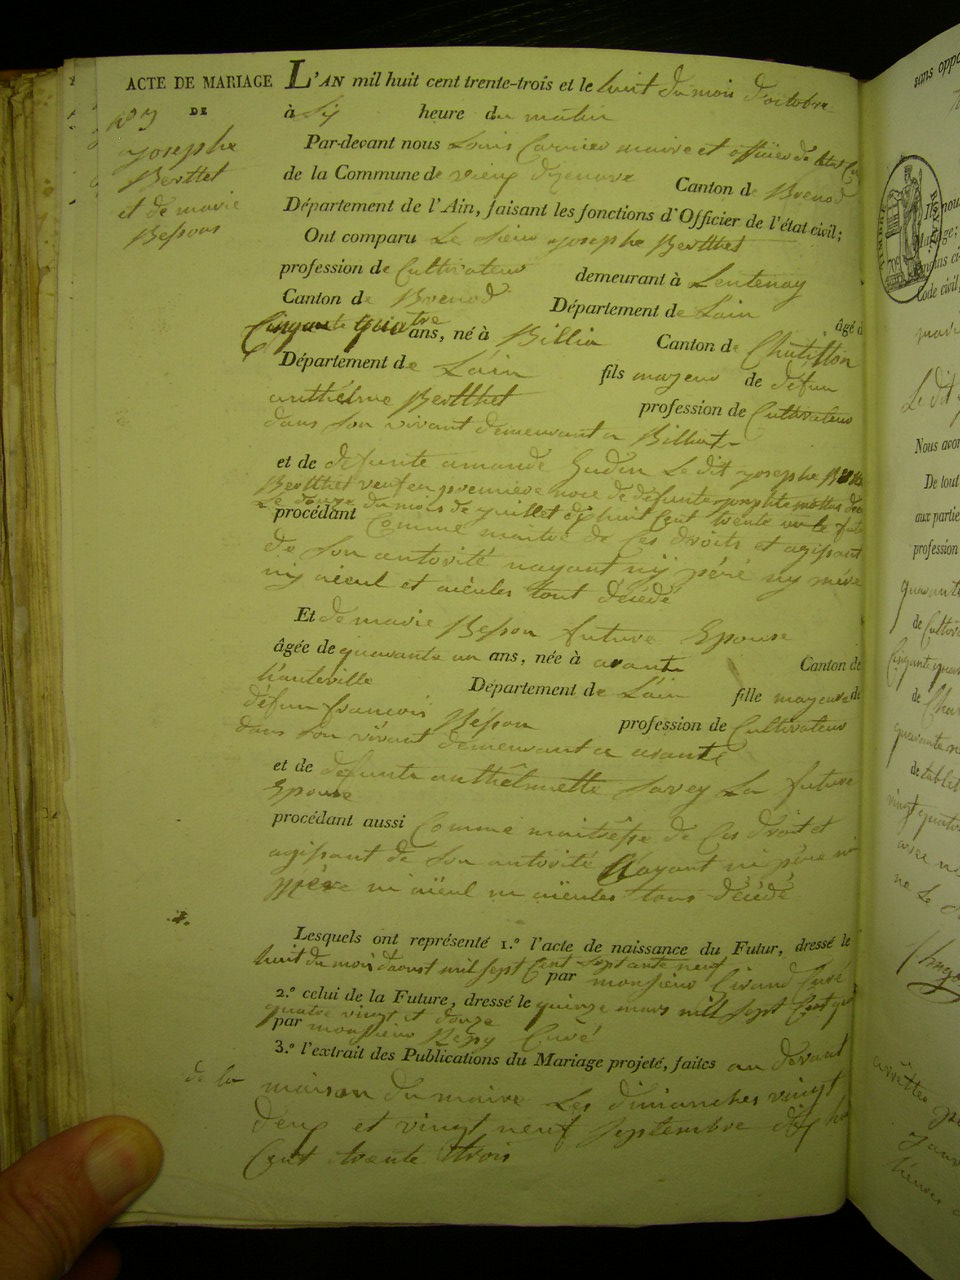 ACTE DE MARIAGE
DE
josephe
Berthet
et de marie
Besson
L'AN mil huit cent trente-trois et le huit du mois d'octobre
à six heure du matin
Par-devant nous Louis Carrier maire et officier de
de la Commune de vieux d'izenave Canton de Brenod
Département de l'Ain, faisant les fonctions d'Officier de l'état civil;
Ont comparu Le sieur josephe Berthet
profession de Cultivateur demeurant à Lentenay
Canton de Brenod Département de Lain âgé de
Cinquante quatre ans, né à Billia Canton de Châtillon
Département de Láin fils mageur de défun
anthélme Berthet profession de Cultivateur
dans son vivant demeurant a Billiat
et de défunte amande Gudin Le dit josephe
Berthet veuf en premiere noce de défunte
Le douze du mois de juillet dix huit Cent trente
procédant Comme maitre de Ces droits et agissant
de son autorité nayant ny pére ny mére
ny aieul et aieules tout décédé
Et de marie Besson future Epouse
âgée de quarante un ans, née à arante Canton de
hauteville Département de Láin fille mageure de
défun francois Bésson profession de Cultivateur
dans son vivant demeurant a arante
et de défunte anthelmette Savey La future
Epouse
procédant aussi Comme maitrésse de Ces droit et
agissant de son autorité Nayant ni pére ni
mére ni aïeul ni aïeules tous décédé
Lesquels ont représenté 1.º l'acte de naissance du Futur, dressé le
huit du mois daoust mil sept Cent septante neuf
par monsieur Curé
2.º celui de la Future, dressé le quinze mars mill sept Cent
quatre vingt et douze
par monsieur Curé
3.º l'extrait des Publications du Mariage projeté, faites au devant
de la maison du maire Les dimanches vingt
deux et vingt neuf septembre dix hui
Cent trente trois
sans oppo
Code civil,
Le dit
Nous avon
De tout
aux partie
profession
quarante
de Cultiv
Cinquante quat
de
vingt quatre